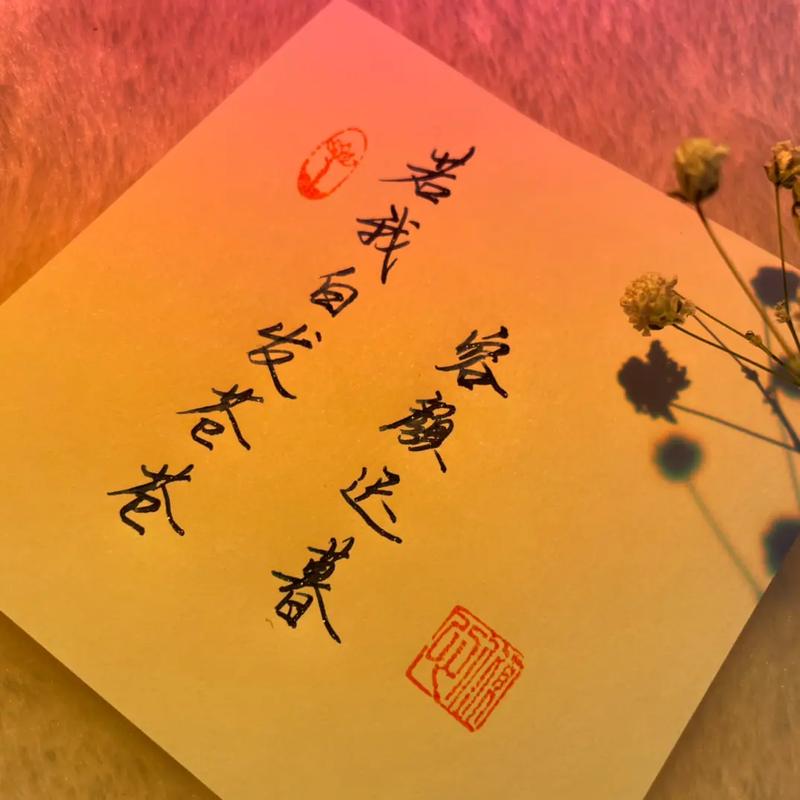 若我白发苍苍
容颜迟暮